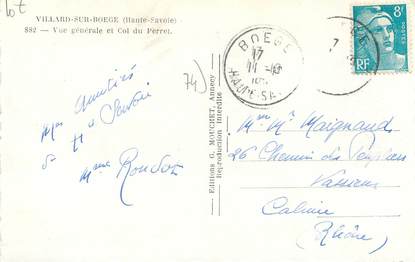 lot
VILLARD-SUR-BOEGE (Haute-Savoie)
882 - Vue générale et Col du Perret.
74)
Mes amitiés
Hte Savoie
Mme
Editions G. MOUCHET, Annecy
Reproduction interdite
BOEGE
17
HAUTE-SA
7
8F
POSTES
RF
Mr Maignaud
26 Chemin des
Vassieux
Caluire
(Rhône)